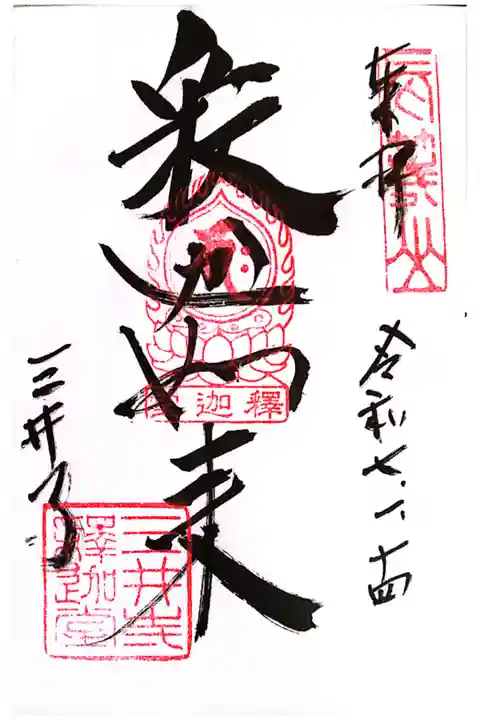 奉拝
長等山
令和七.一.十四
釈迦如来
釋迦
三井寺
三井寺
釋迦堂